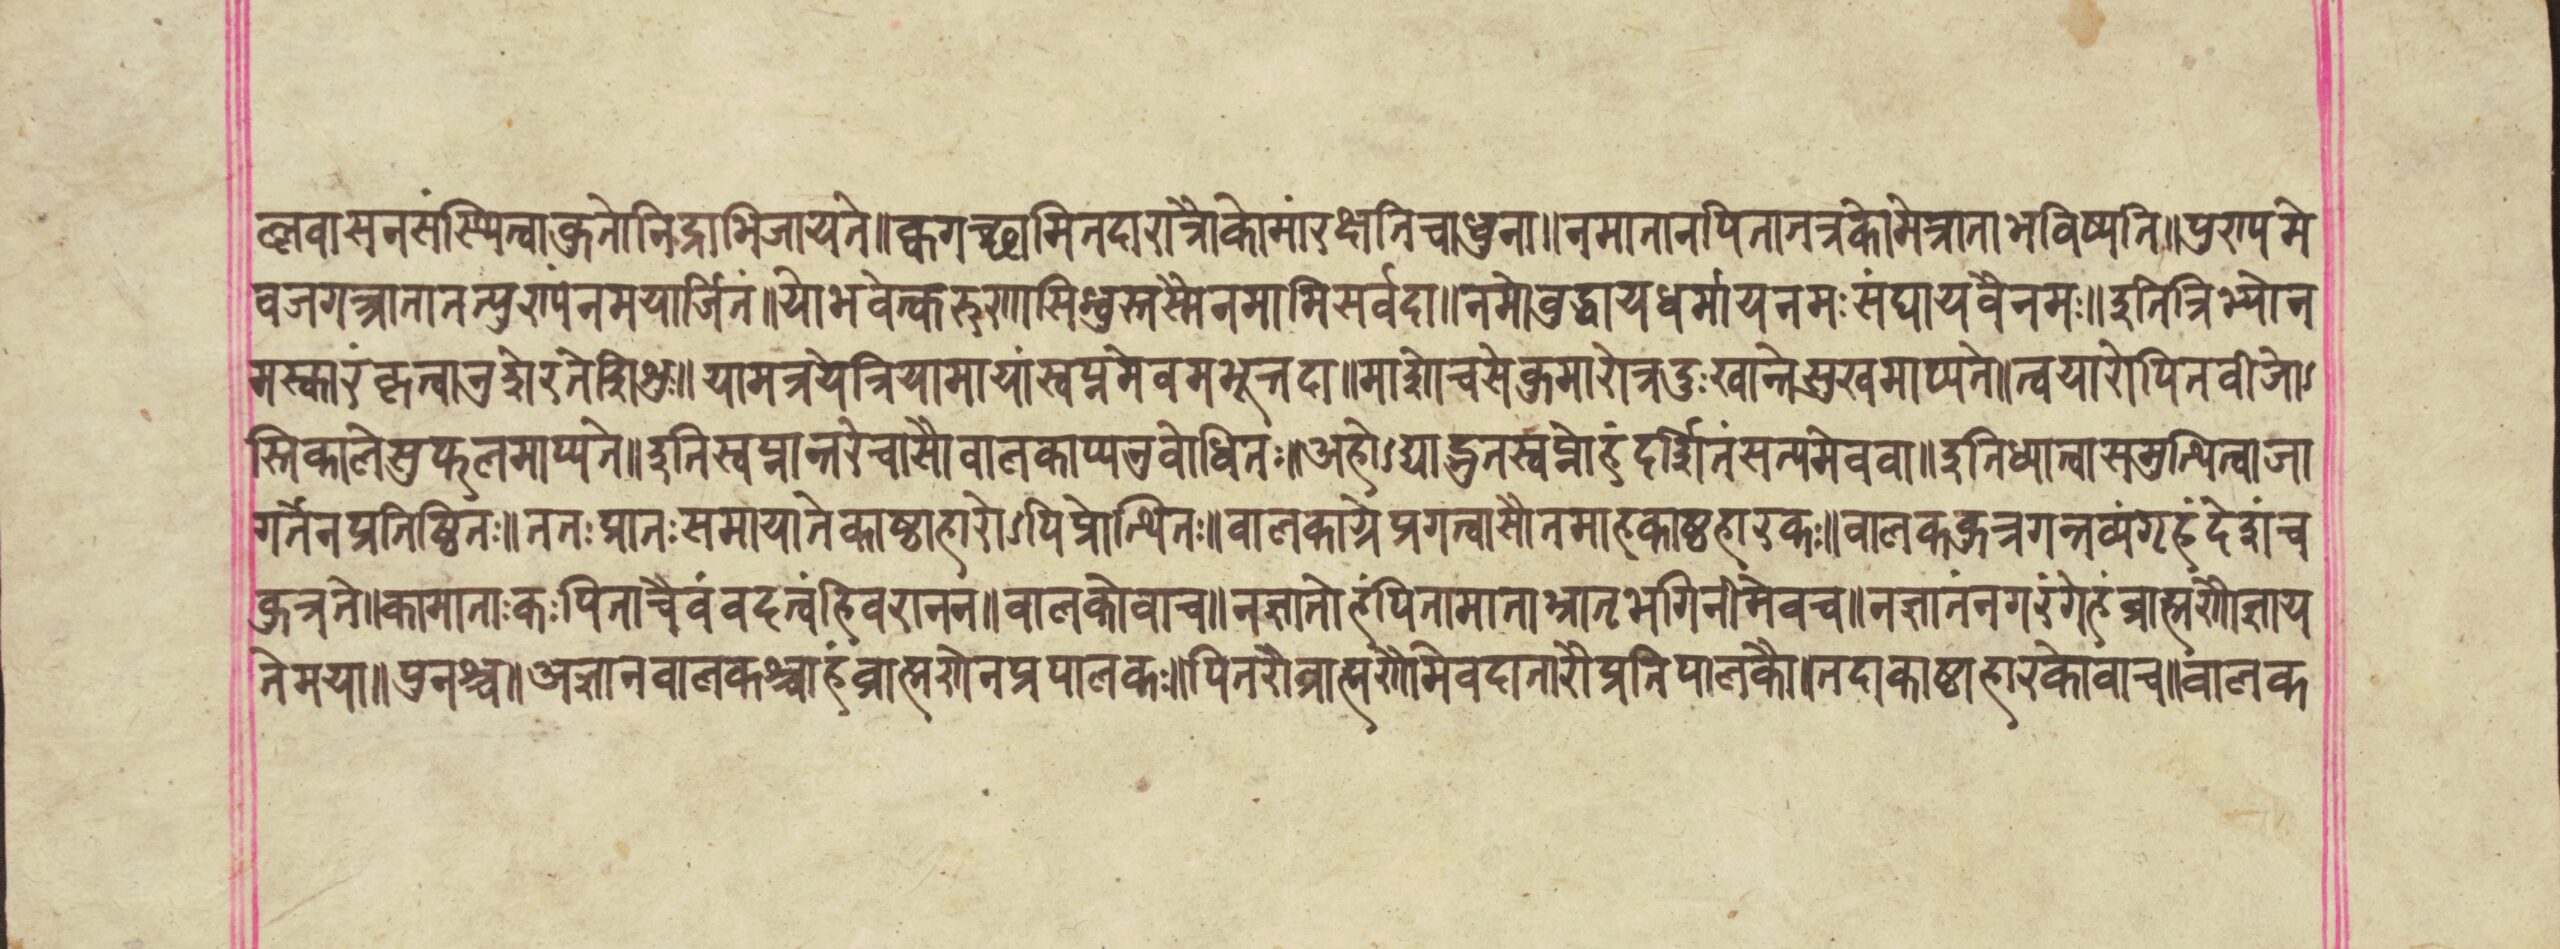 त्नवासनसंस्थित्वाकुतोनिद्राभिजायते॥क्वगच्छामितदारात्रौकोमांरक्षतिचाधुना॥नमातानपितातत्रकोमेत्राताभविष्यति॥पुण्यमे
वजगत्त्रातातत्पुण्यंनमयार्जितं॥योभवेत्करुणासिन्धुस्तस्मैनमामिसर्वदा॥नमोबुद्धायधर्मायनमःसंघायवैनमः॥इतित्रिभ्योन
मस्कारंकृत्वानुच्चोरतेशिशुः॥यामत्रयेत्रियामायांस्वप्नमेवमभूत्तदा॥माशोचसेकुमारोत्रदुःखान्तेसुखमाप्यते॥त्वयारोपितवीजोऽ
स्तिकालेसुफलमाप्यते॥इतिस्वप्नान्तरेचासौवालकाप्यनुवोधितः॥अहोऽद्याद्भुतस्वप्नोहंदर्शितंसत्यमेववा॥इतिध्यात्वासमुत्थित्वाजा
गर्तेनप्रतिष्ठितः॥ततःप्रातःसमायातेकाष्ठाहारोऽपिप्रोत्थितः॥वालकाग्रेप्रगत्वासौतमाहकाष्ठहारकः॥वालककुत्रगन्तव्यंगृहंदेशंच
कुत्रते॥कामाताःकःपिताचैवंवदत्वंहिवरानन॥वालकोवाच॥नज्ञातोहंपितामाताभ्रातृभगिनीमेवच॥नज्ञातंनगरंगेहंब्राह्मणौज्ञाय
तेमया॥पुनश्च॥अज्ञानवालकश्चाहंब्राह्मणेनप्रपालकः॥पितरौब्राह्मणौमेवदातारौप्रतिपालकौ॥तदाकाष्ठाहारकोवाच॥वालक